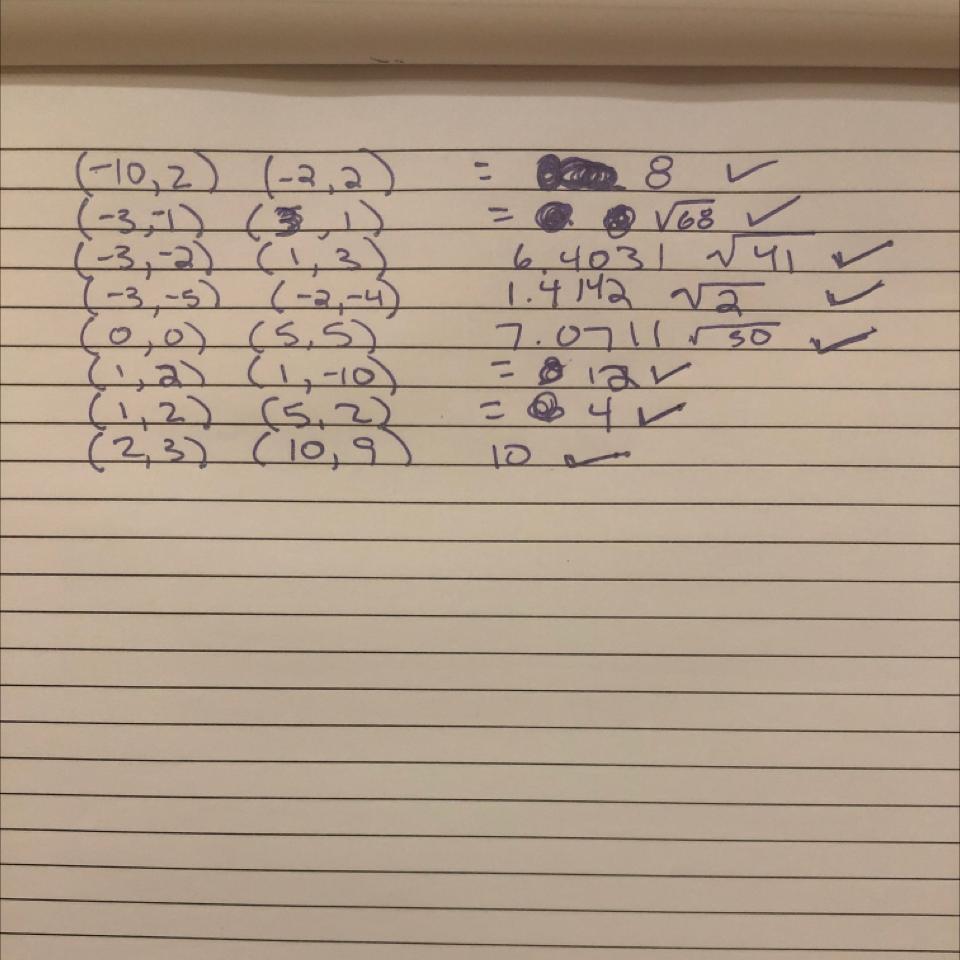 (-10,2) (-2,2) = 8 ✓
(-3,-1) ( , 1) = √68 ✓
(-3,-2) (1,3) 6.4031 √41 ✓
(-3,-5) (-2,-4) 1.4142 √2 ✓
(0,0) (5,5) 7.0711 √50 ✓
(1,2) (1,-10) = 12 ✓
(1,2) (5,2) = 4 ✓
(2,3) (10,9) 10 ✓